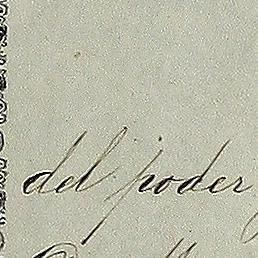 del poder